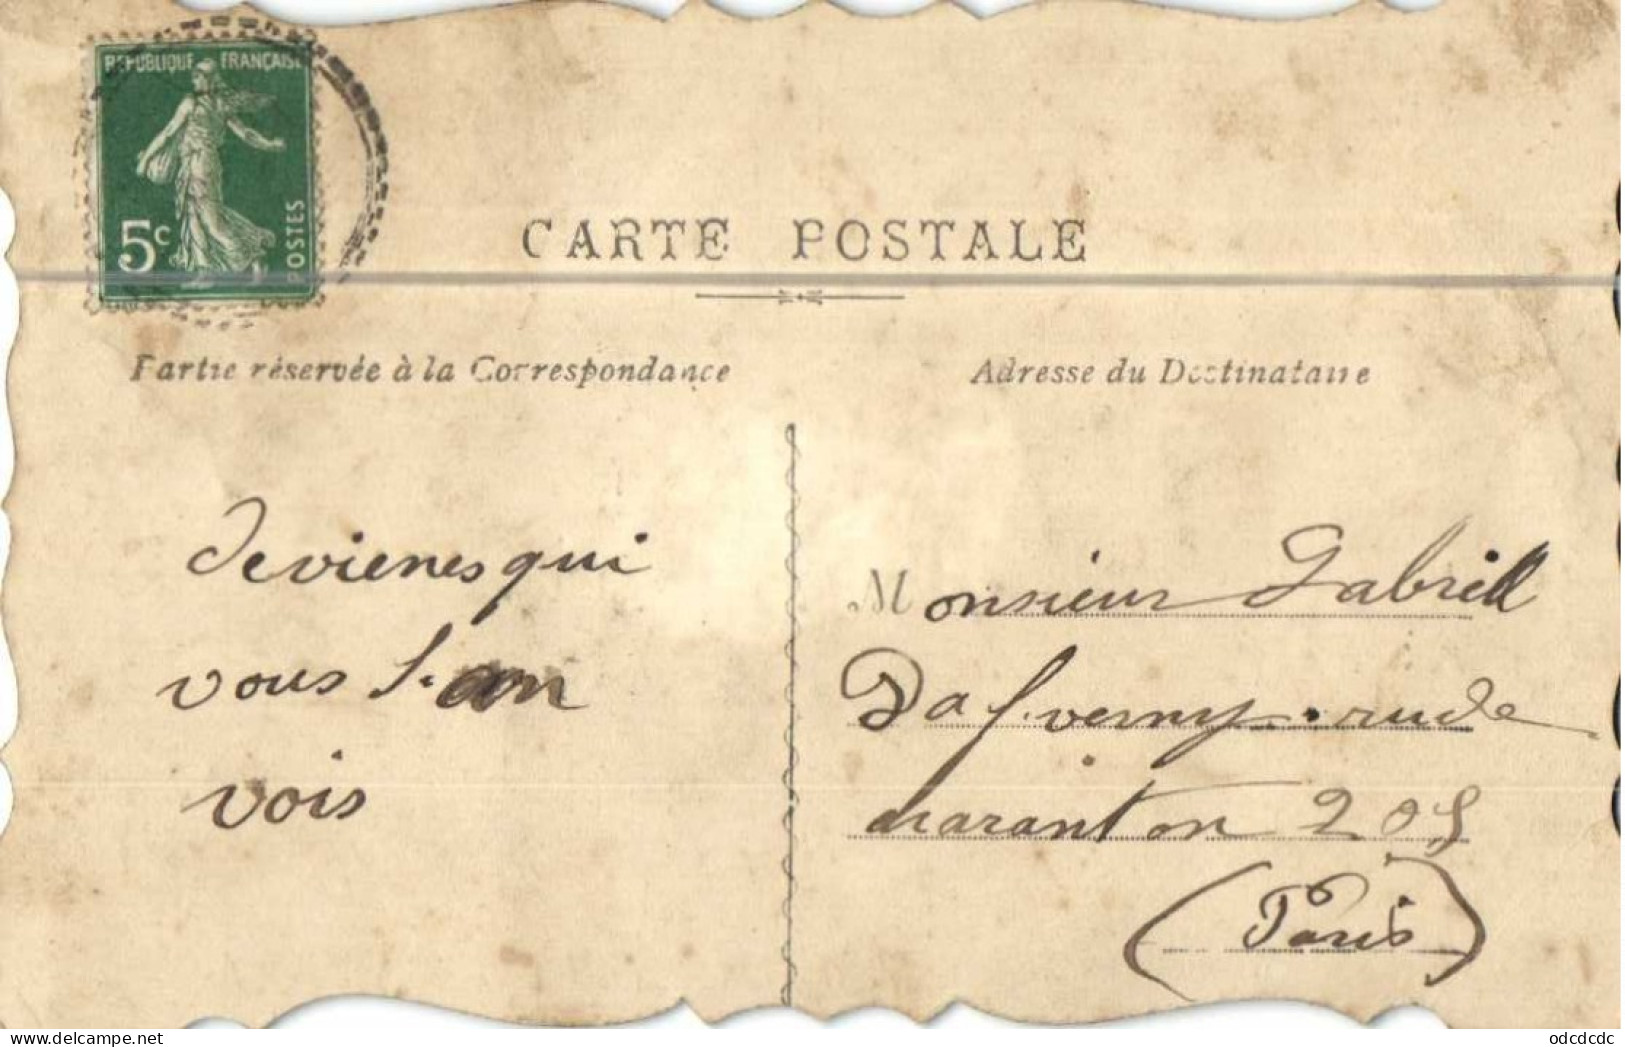 REPUBLIQUE FRANÇAISE
5c
POSTES
CARTE POSTALE
Partie réservée à la Correspondance
Adresse du Destinataire
devienes qui
vous
vois
Monsieur Gabriell
rude
charanton 205
(Paris)
delcampe.net
odcdcdc